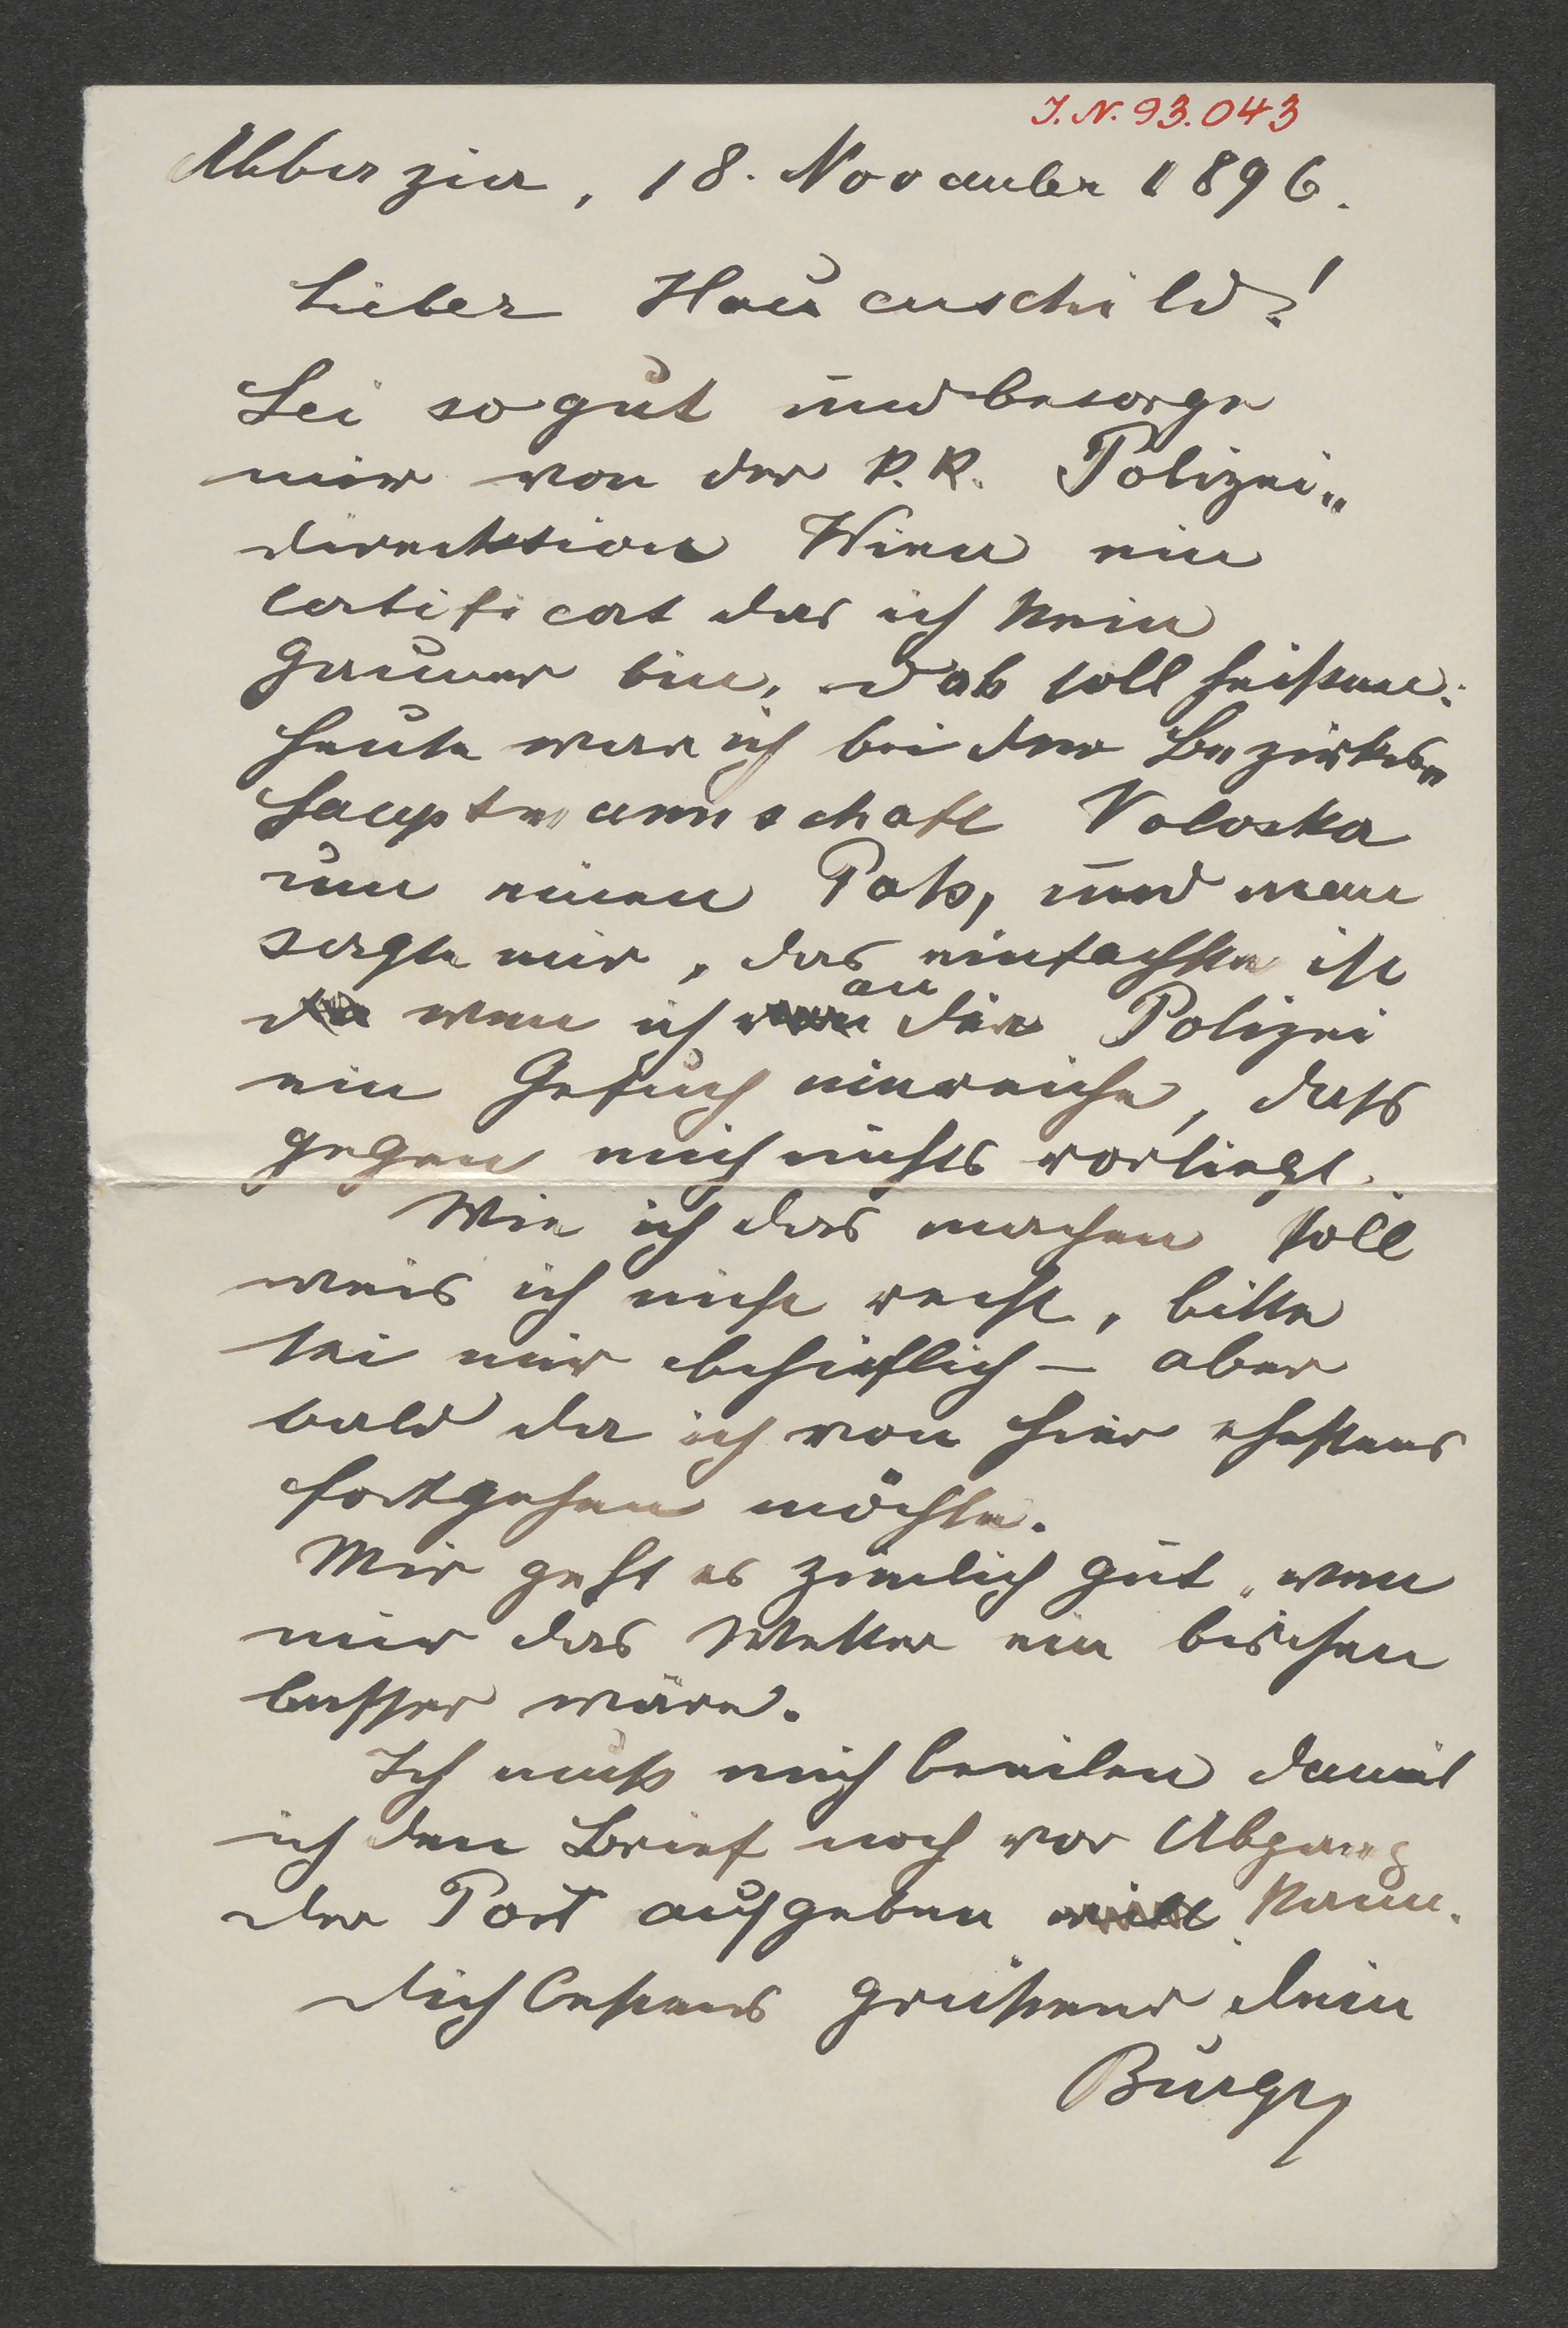 J. N. 93.043
Abbazia, 18. November 1896.
Lieber Hauenschild!
Sei so gut und besorge
mir von der k. k. Polizei„
direcktion Wien ein
certificat das ich kein
Gauner bin, das soll heißen:
heute war ich bei der Bezirks„
hauptmannschaft Voloska
um einen Paß, und man
sagte mir, das einfachste ist
wen ich an die Polizei
ein Gesuch einreiche, dass
gegen mich nichts vorliegt.
Wie ich das machen soll
weis ich nicht recht, bitte
sei mir behilflich – aber
bald da ich von hier ehestens
fortgehen möchte.
Mir geht es ziemlich gut, wen
nur das Wetter ein bischen
besser wäre.
Ich muß mich beeilen damit
ich den Brief noch vor Abgang
der Post aufgeben will kann.
Dich bestens grüßend dein
Burger